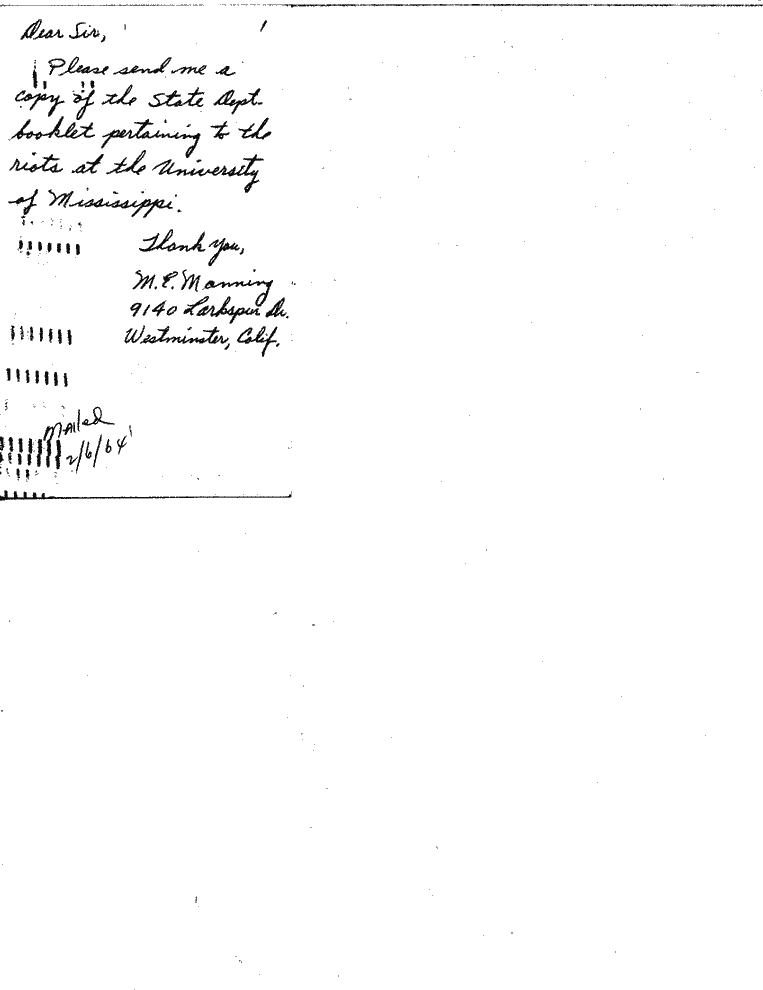 Dear Sir,
Please send me a
copy of the State Dept.
booklet pertaining to the
riots at the University
of Mississippi.
Thank you,
M.E. Manning
9140 Larkspur Dr.
Westminster, Calif.
Mailed
2/6/64